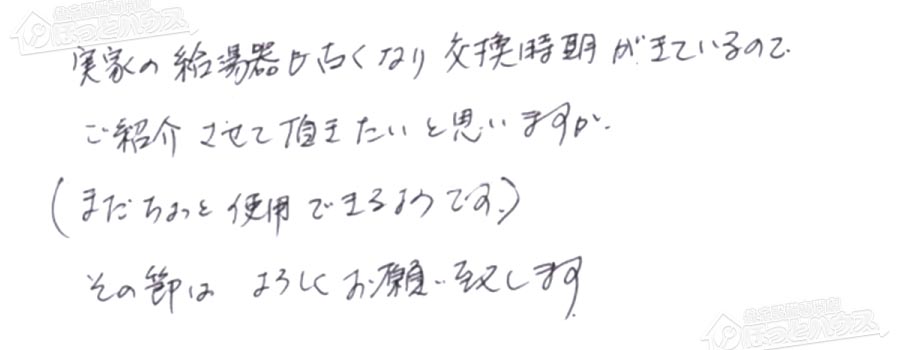 住宅設備専門店
ほっとハウス
実家の給湯器も古くなり交換時期がきているので
ご紹介させて頂きたいと思いますが、
(まだちょっと使用できるようです。)
その節はよろしくお願い致します。
ほっとハウス